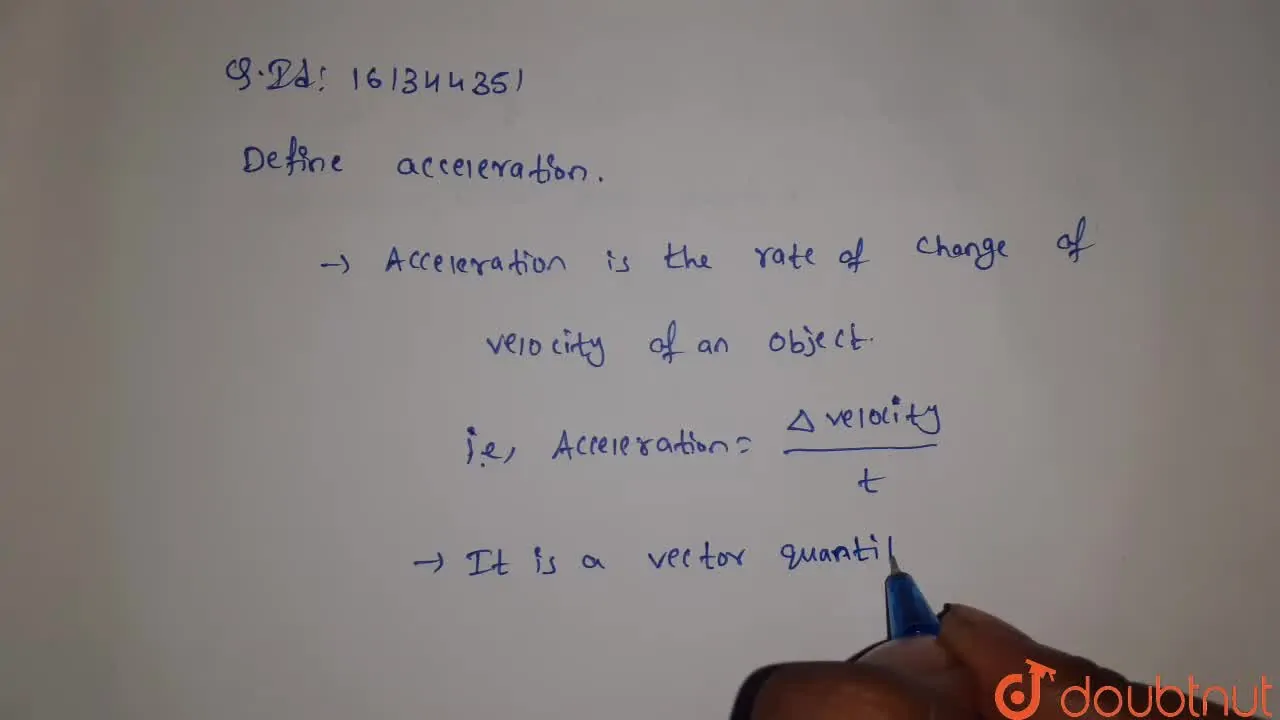 Q.Id: 161344351
Define acceleration.
→ Acceleration is the rate of change of
velocity of an object.
i.e, Acceleration = Δ velocity
t
→ It is a vector quanti
doubtnut